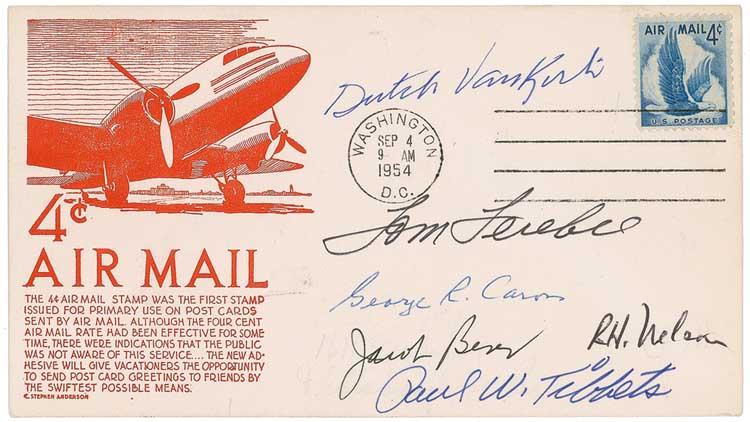 AIR MAIL 4¢
U.S. POSTAGE
Dutch VanKirk
WASHINGTON
SEP 4
9 - AM
1954
D.C.
Tom Ferebee
4¢
AIR MAIL
THE 4¢ AIR MAIL STAMP WAS THE FIRST STAMP
ISSUED FOR PRIMARY USE ON POST CARDS
SENT BY AIR MAIL. ALTHOUGH THE FOUR CENT
AIR MAIL RATE HAD BEEN EFFECTIVE FOR SOME
TIME, THERE WERE INDICATIONS THAT THE PUBLIC
WAS NOT AWARE OF THIS SERVICE.... THE NEW AD-
HESIVE WILL GIVE VACATIONERS THE OPPORTUNITY
TO SEND POST CARD GREETINGS TO FRIENDS BY
THE SWIFTEST POSSIBLE MEANS.
C. STEPHEN ANDERSON
George R. Caron
Jacob Beser
R.H. Nelson
Paul W. Tibbets